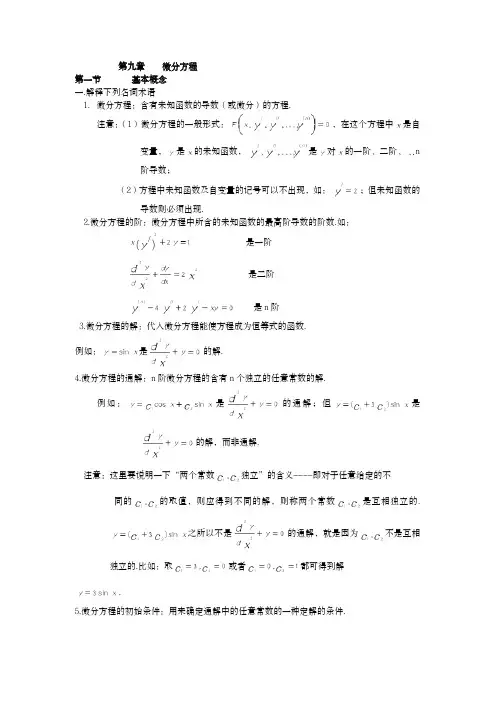 第九章 微分方程
第一节 基本概念
一.解释下列名词术语
1. 微分方程：含有未知函数的导数（或微分）的方程.
注意：（1）微分方程的一般形式： F(x, y', y'', ..., y^(n)) = 0 ，在这个方程中 x 是自
变量， y 是 x 的未知函数， y', y'', ..., y^(n) 是 y 对 x 的一阶，二阶，…n
阶导数；
（2）方程中未知函数及自变量的记号可以不出现，如： y'' = 2 ；但未知函数的
导数则必须出现.
2.微分方程的阶：微分方程中所含的未知函数的最高阶导数的阶数.如：
+2y=1 是一阶
d²y/dx² + dy/dx = 2 是二阶
y^(n) − 4 y'' + 2 y' − xy = 0 是n阶
3.微分方程的解：代入微分方程能使方程成为恒等式的函数.
例如： y = sin x 是 d²y/dx² + y = 0 的解.
4.微分方程的通解：n阶微分方程的含有n个独立的任意常数的解.
例如： y = C₁ cos x + C₂ sin x 是 d²y/dx² + y = 0 的通解；但 y = (C₁ + 3C₂) sin x 是
d²y/dx² + y = 0 的解，而非通解.
注意：这里要说明一下“两个常数 C₁, C₂ 独立”的含义----即对于任意给定的不
同的 C₁, C₂ 的取值，则应得到不同的解，则称两个常数 C₁, C₂ 是互相独立的.
y = (C₁ + 3C₂) sin x 之所以不是 d²y/dx² + y = 0 的通解，就是因为 C₁, C₂ 不是互相
独立的.比如：取 C₁ = 3, C₂ = 0 或者 C₁ = 0, C₂ = 1 都可得到解
y = 3 sin x .
5.微分方程的初始条件：用来确定通解中的任意常数的一种定解的条件.